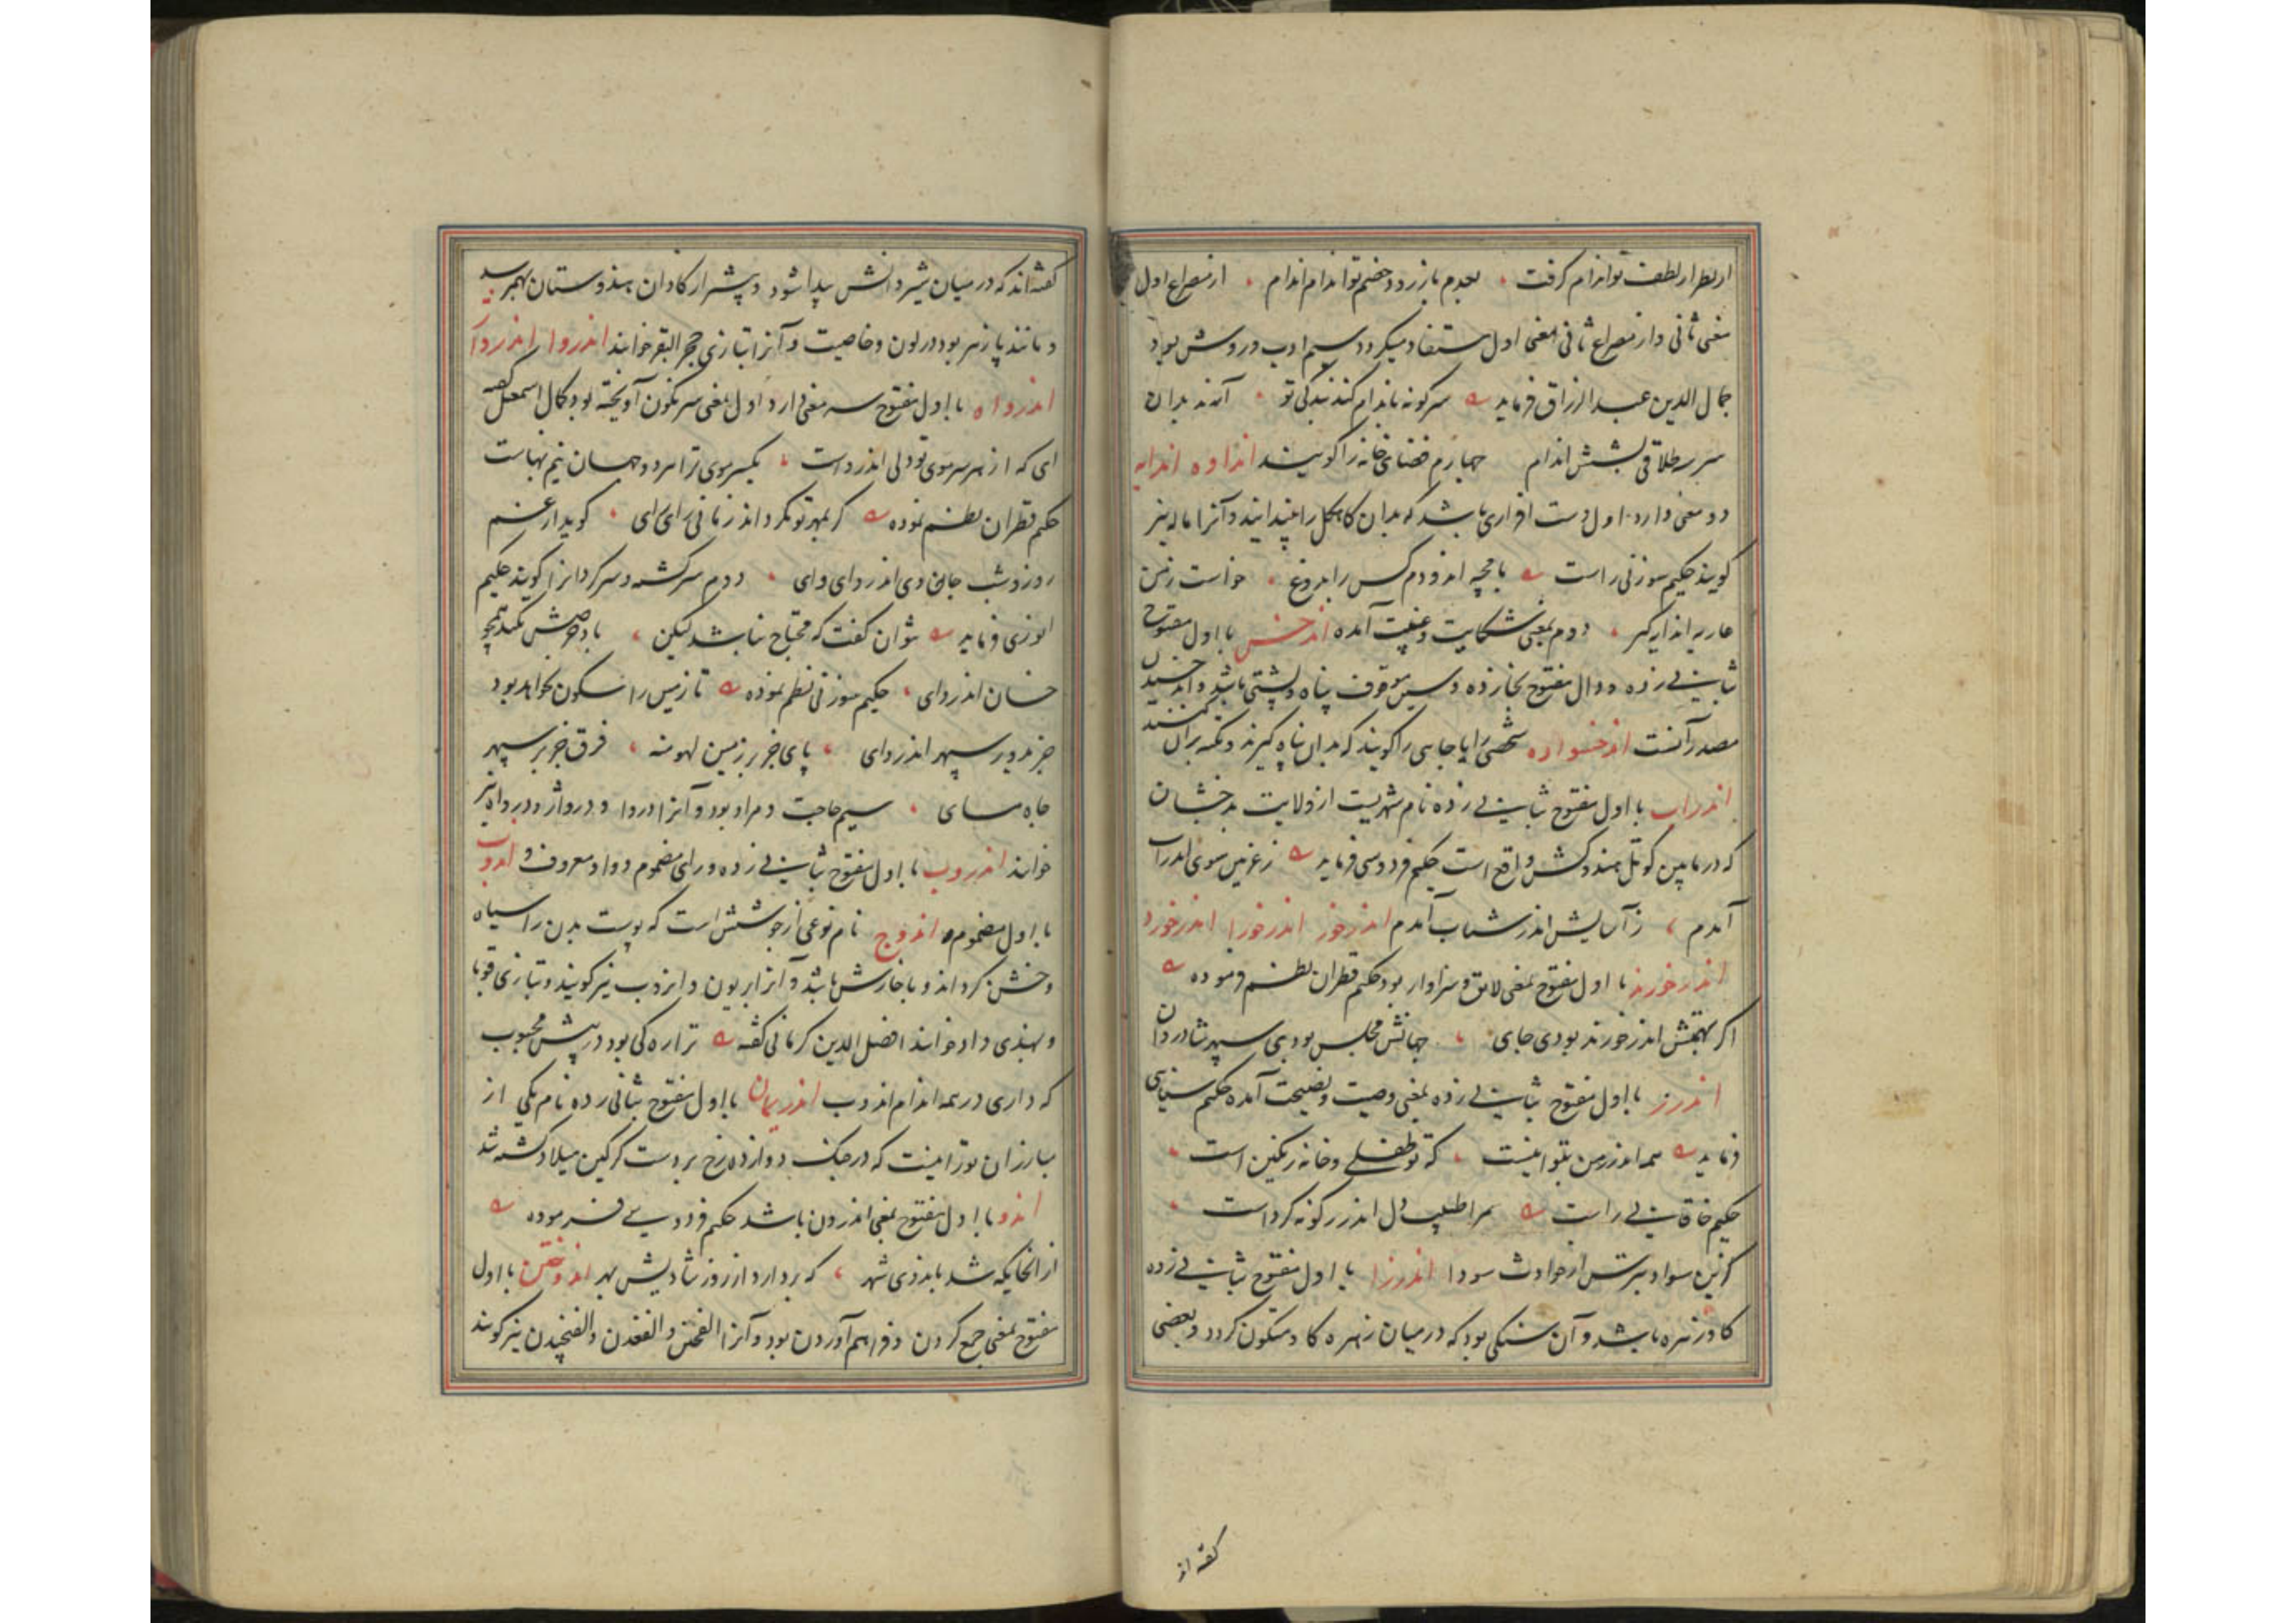 از نظر از لطف تو اندام گرفت ، بعدم باز رود خصم تو اندام اندام ، از مصراع اول
معنی ثانی و از مصراع ثانی معنی اول مستفاد میگردد سیم ادب و روش بود
جمال الدین عبد الرزاق فرماید سر کونه باندام کنند بندکی تو ،
سر بر خط لاقی بشش اندام چهارم فضای خانه را کویند انداوه اندایه
دو معنی دارد اول دست افزاری باشد که بدان کاهکل را بیندایند و آنرا ماله نیز
کویند حکیم سوزنی راست با مچه اندودم کس را بدروغ ، خواست زمن
عاریه اندایه کیر ، دوم بمعنی شکایت و غیبت آمده اندخس با اول مفتوح
بثانی زده و دال مفتوح بخا زده و سین موقوف پناه و پشتی باشد و اندخسیدن
مصدر آنست اندخسواره شخصی را یا جایی را کویند که بدان پناه کیرند و تکیه بران کنند
اندراب با اول مفتوح بثانی زده نام شهریست از ولایت بدخشان
که در ما بین کوتل هندوکش واقع است حکیم فردوسی فرماید ز غزنین سوی اندراب
آمدم ، ز آسایش اندر شتاب آمدم اندرخور اندرخورا اندرخورد
اندرخورند با اول مفتوح بمعنی لایق و سزاوار بود حکیم قطران نظم نموده
اکر بهمتش اندرخورند بودی جای ، جهانش مجلس بودی سپهر شادروان
اندرز با اول مفتوح بثانی زده بمعنی وصیت و نصیحت آمده حکیم سنایی
فرماید همه اندرز من بتو اینست ، که تو طفلی و خانه رنکین است ،
حکیم خاقانی راست مرا طبیب دل اندرز کونه کرد است ،
کزین سواد بترس از حوادث سودا اندرزا با اول مفتوح بثانی زده
کاو زهره باشد و آن سنکی بود که در میان زهره کاو متکون کردد و بعضی
کفته اند
کفته اند که در میان شیردانش پیدا شود و بیشتر از کاوان هندوستان بهم رسد
و مانند پازهر بود در لون و خاصیت و آنرا بتازی حجر البقر خوانند اندروا اندروای
اندرواه با اول مفتوح سه معنی دارد اول بمعنی سرنکون آویخته بود کمال اسمعیل کفته
ای که از هر سر موی تو دلی اندرواست ، یکسر موی ترا هر دو جهان نیم بهاست
حکیم قطران نظم نموده کر بمهر تو نکرد اندر زمانی رای رای ، کوید از غم
روز و شب جان وی اندروای وای ، دوم سرکشته و سرکردانرا کویند حکیم
انوری فرماید نتوان کفت که محتاج نباشد لیکن ، باد حرصش نکند همچو
خسان اندروای ، حکیم سوزنی نظم نموده تا زمین را سکون نخواهد بود
جز بدور سپهر اندروای ، پای جز بر زمین لهو منه ، فرق جز بر سپهر
جاه مسای ، سیم حاجت و مراد بود و آنرا دروا و درواژ و درواه نیز
خوانند اندروب با اول مفتوح بثانی زده و رای مضموم و واو معروف و اندوب
با اول مضموم اندوج نام نوعی از جوششی است که پوست بدن را سیاه
و خشن کرداند و با خارش باشد و آنرا بریون و انزوب نیز کویند و بتازی قوبا
و بهندی داد خوانند افضل الدین کرمانی کفته ترا ره کی بود در پیش محبوب
که داری در همه اندام اندوب اندریمان با اول مفتوح بثانی زده نام یکی از
مبارزان تورانیست که در جنک دوازده رخ بر دست کرکین میلاد کشته شد
اندو با اول مفتوح بمعنی اندرون باشد حکیم فردوسی فرموده
از انجایکه شد باندوی شهر ، که بردارد از روز شادیش بهر اندوختن با اول
مفتوح بمعنی جمع کردن و فراهم آوردن بود و آنرا الفختن و الفغدن و الفنجیدن نیز کویند